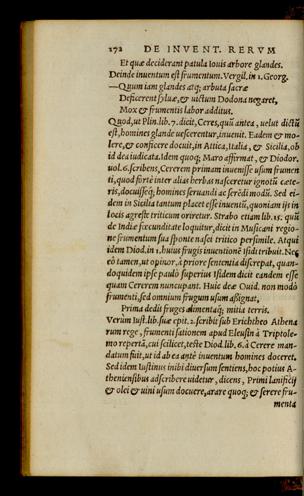 172 DE INVENT. RERVM
Et quæ deciderant patula Iouis arbore glandes.
Deinde inuentum est frumentum. Vergil. in 1. Georg.
—Quum iam glandes atq; arbuta sacræ
Deficerent syluæ, & uictum Dodona negaret,
Mox & frumentis labor additus.
Quod, ut Plin. lib. 7. dicit, Ceres, quũ antea, uelut dictũ
est, homines glande uescerentur, inuenit. Eadem & mo=
lere, & conficere docuit, in Attica, Italia, & Sicilia, ob
id dea iudicata. Idem quoq; Maro affirmat, & Diodor.
uol. 6. scribens, Cererem primam inuenisse usum frumen
ti, quod forte inter alias herbas nasceretur ignotũ cæte-
ris, docuisseq; homines seruandi ac serēdi modũ. Sed ei-
dem in Sicilia tantum placet esse inuentũ, quoniam ijs in
locis agreste triticum oriretur. Strabo etiam lib. 15. quũ
de Indiæ fœcunditate loquitur, dicit in Musicani regio-
ne frumentum sua sponte nasci tritico persimile. Atqui
idem Diod. in 1. huius frugis inuentionē Isidi tribuit. Nec
eò tamen, ut opinor, à priore sententia discrepat, quan-
doquidem ipse paulò superius Isidem dicit eandem esse
quam Cererem nuncupant. Huic deæ Ouid. non modò
frumenti, sed omnium frugum usum assignat,
Prima dedit fruges alimentaq; mitia terris.
Verùm Iust. lib. suæ epit. 2. scribit sub Erichtheo Athena
rum rege, frumenti sationem apud Eleusin à Triptole-
mo repertā, cui scilicet, teste Diod. lib. 6. à Cerere man-
datum fuit, ut id ab ea antè inuentum homines doceret.
Sed idem Iustinus inibi diuersum sentiens, hoc potius A-
theniensibus adscribere uidetur, dicens, Primi lanificij
& olei & uini usum docuere, arare quoq; & serere fru-
menta